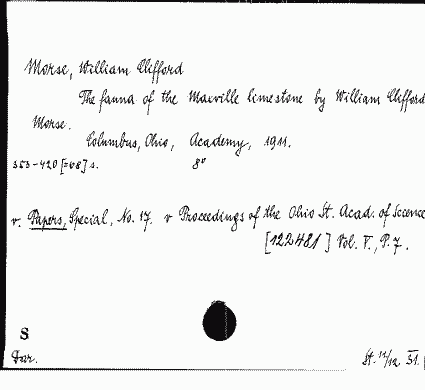 Morse, William Clifford
The fauna of the Maxville limestone by William Clifford
Morse.
Columbus, Ohio, Academy, 1911.
353-420 [=68] s. 8°
v. Papers, Special, No. 17. v Proceedings of the Ohio St. Acad. of Science
[122481] Vol. V., P. 7.
S
Dar.
St. 11/12. 31.